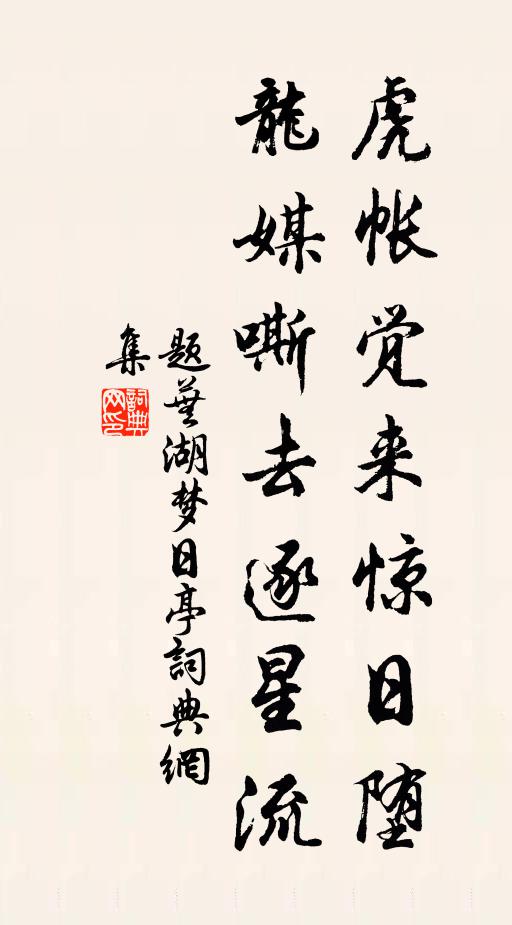 虎帐觉来惊日堕
龍媒嘶去逐星流
题蕪湖梦日亭詞典網
集
詞典
网印